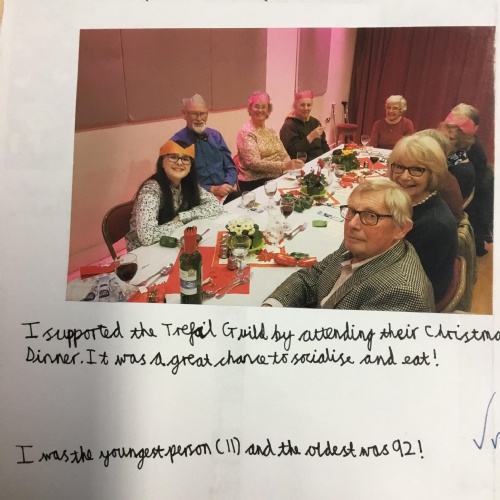 I supported the Trefoil Guild by attending their Christma
Dinner. It was a great chance to socialise and eat!
I was the youngest person (11) and the oldest was 92!